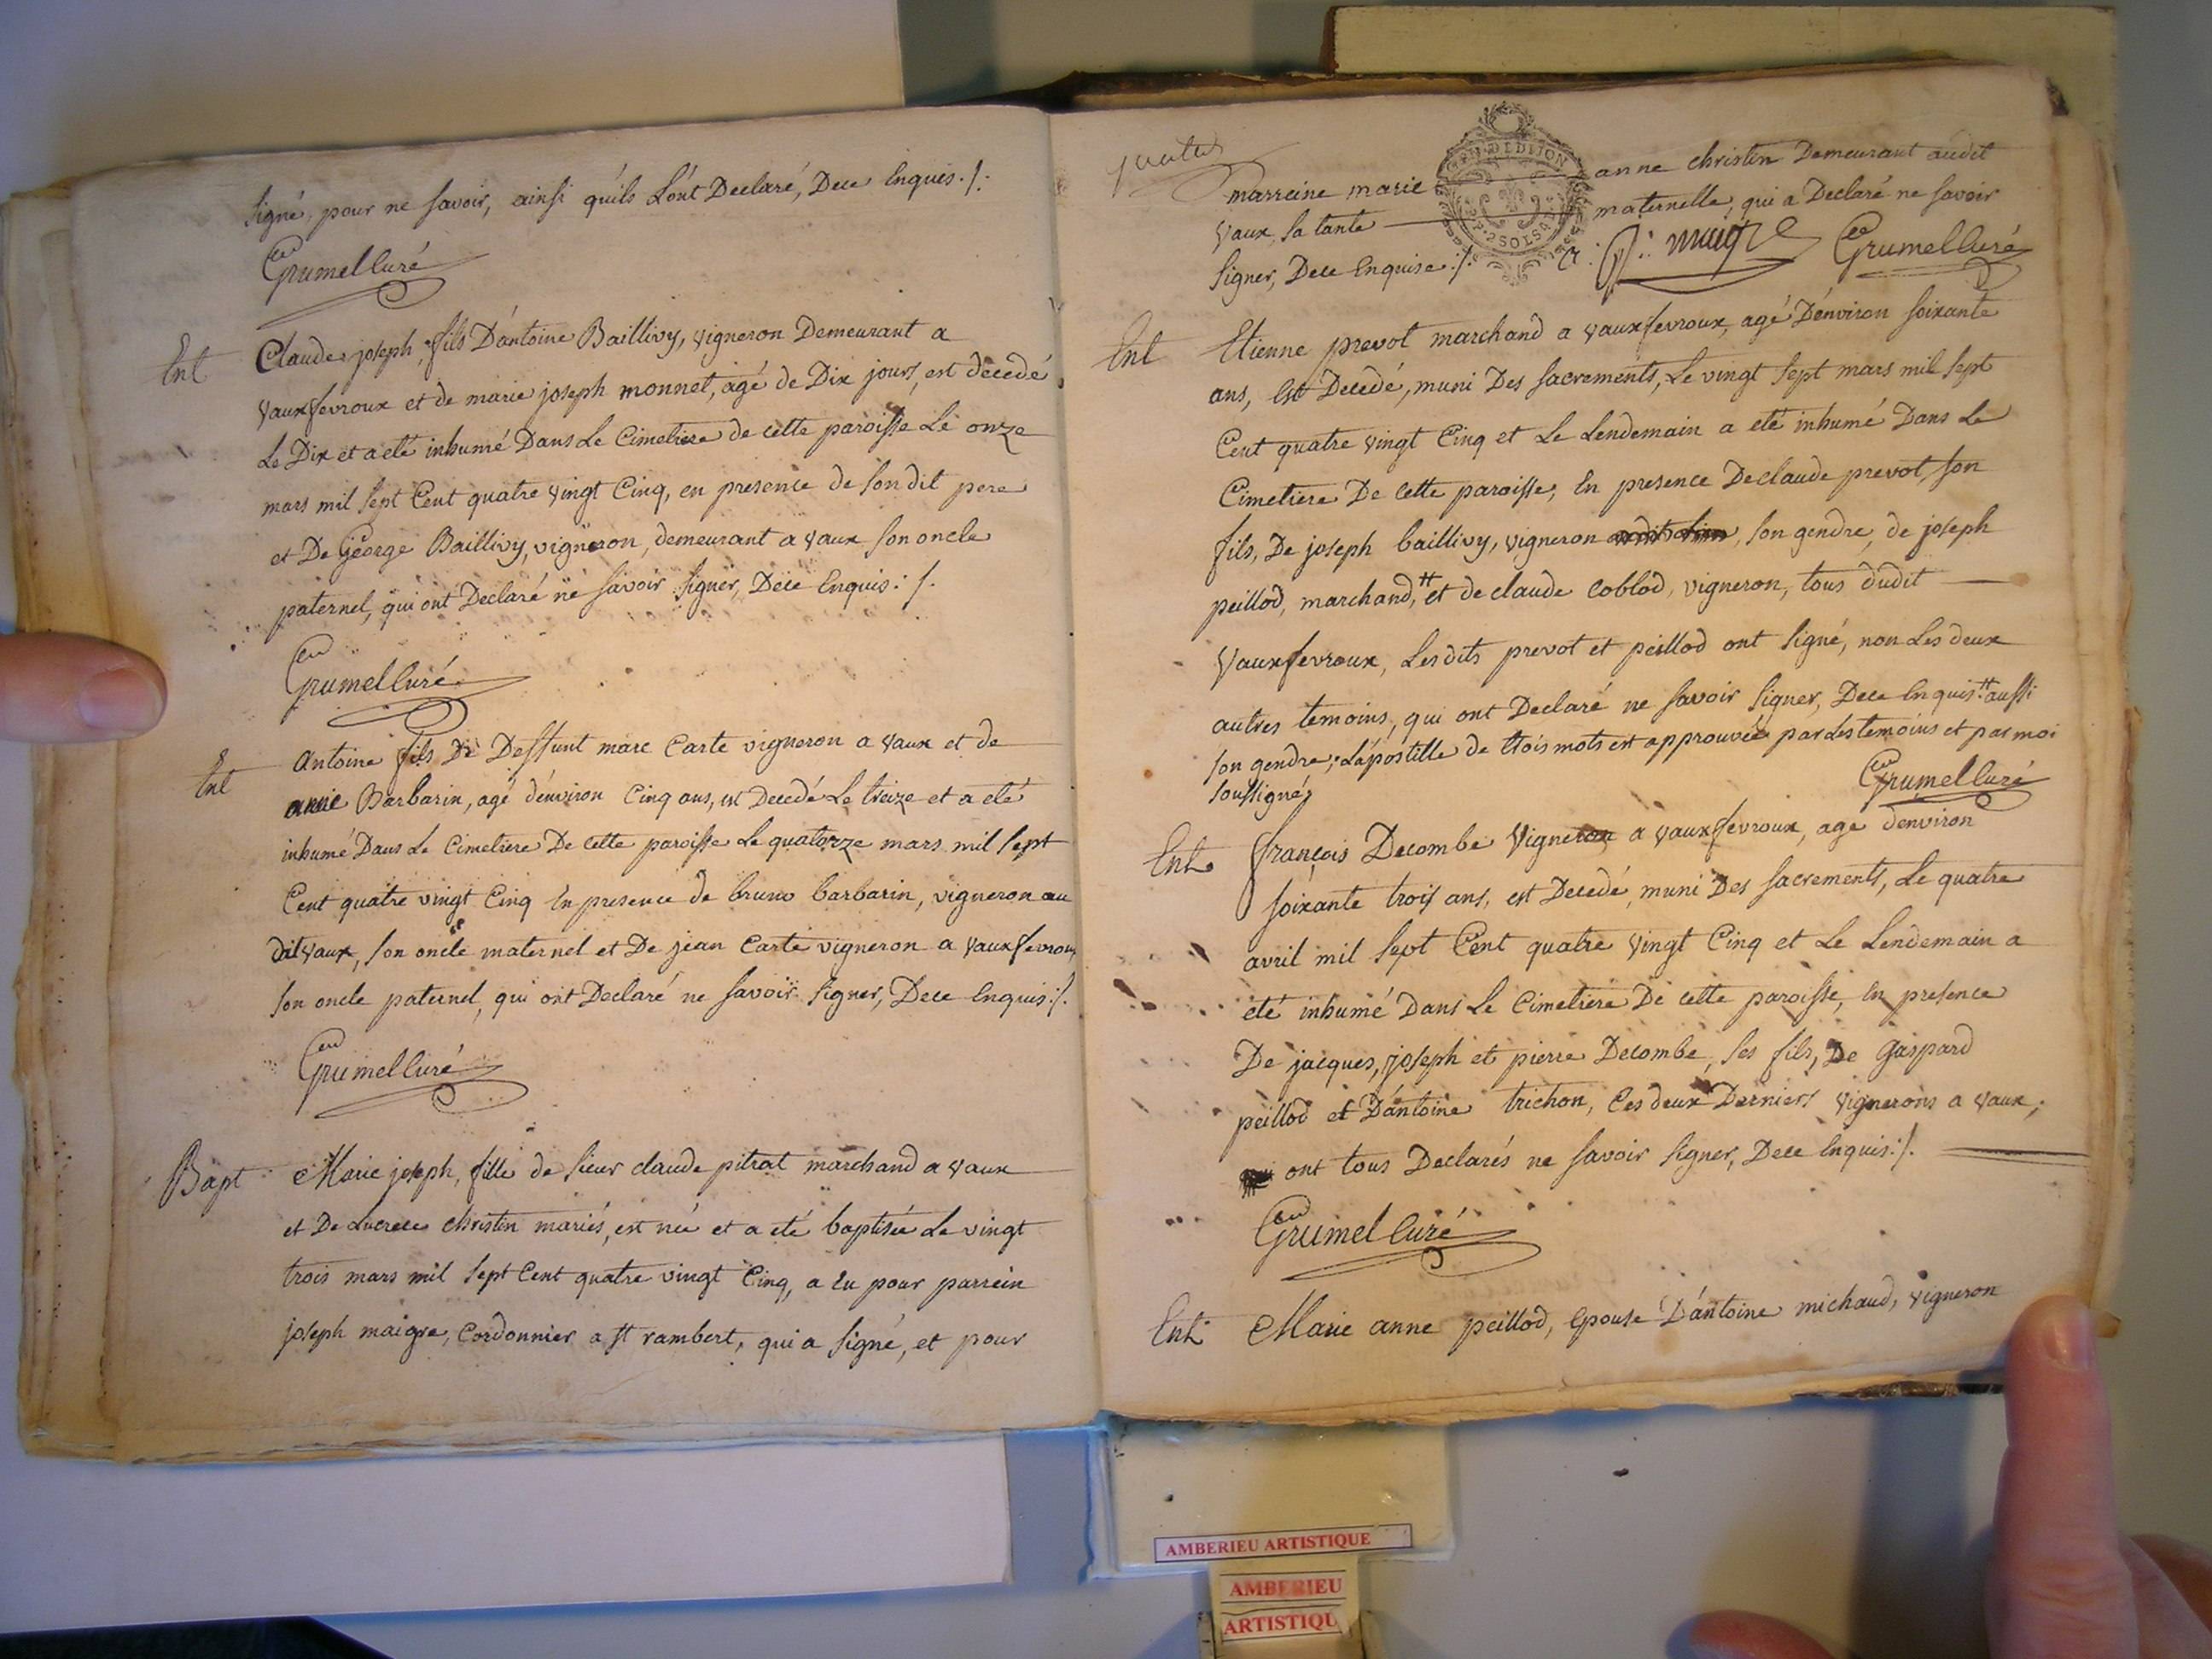 signé, pour ne savoir, ainsi qu'ils L'ont Declaré, Dece Enquis ./.
Grumel Curé
Ent
Claude joseph, fils D'antoine Baillivy, vigneron Demeurant a
vauxfevroux et de marie joseph monnet, agé de Dix jours, est decedé
Le Dix et a eté inhumé Dans Le Cimetiere de cette paroisse Le onze
mars mil sept Cent quatre vingt Cinq, en presence de son dit pere
et De George Baillivy, vigneron, demeurant a vaux son oncle
paternel, qui ont Declaré ne savoir signer, Dece Enquis ./.
Grumel Curé
Ent
Antoine fils De Deffunt marc Carte vigneron a vaux et de
anne Barbarin, agé d'environ Cinq ans, est Decedé Le treize et a eté
inhumé Dans Le Cimetiere De cette paroisse Le quatorze mars mil sept
Cent quatre vingt Cinq En presence de bruno barbarin, vigneron au
dit vaux, son oncle maternel et De jean Carte vigneron a vauxfevroux
son oncle paternel, qui ont Declaré ne savoir signer, Dece Enquis ./.
Grumel Curé
Bapt
Marie joseph, fille de sieur claude pitrat marchand a vaux
et De Lucrece christin mariés, est née et a eté baptisée Le vingt
trois mars mil sept Cent quatre vingt Cinq, a Eu pour parrein
joseph maigre, Cordonnier a St rambert, qui a signé, et pour
marreine marie anne christin Demeurant audit
vaux, sa tante maternelle, qui a Declaré ne savoir
signer, Dece Enquise ./. Grumel Curé
GEN. DE DIJON
2 SOLS
Ent
Etienne prevot marchand a vauxfevroux, agé D'environ soixante
ans, Est Decedé, muni Des sacrements, Le vingt sept mars mil sept
Cent quatre vingt Cinq et Le Lendemain a eté inhumé Dans Le
Cimetiere De Cette paroisse, En presence De claude prevot, son
fils, De joseph baillivy, vigneron, son gendre, de joseph
peillod, marchand,# et de claude Coblod, vigneron, tous dudit
vauxfevroux, Lesdits prevot et peillod ont signé, non Les deux
autres temoins, qui ont Declaré ne savoir signer, Dece Enquis. # aussi
son gendre; L'apostille de trois mots est approuvée par Les temoins et par moi
soussigné,
Grumel Curé
Ent
françois Decombe Vigneron a vauxfevroux, agé d'environ
soixante trois ans, est Decedé, muni Des sacrements, Le quatre
avril mil sept Cent quatre vingt Cinq et Le Lendemain a
eté inhumé Dans Le Cimetiere De cette paroisse, En presence
De jacques, joseph et pierre Decombe, ses fils, De Gaspard
peillod et D'antoine trichon, Ces deux Derniers vignerons a vaux;
ont tous Declarés ne savoir signer, Dece Enquis ./.
Grumel Curé
Ent
Marie anne peillod, Epouse D'antoine michaud, vigneron
AMBERIEU ARTISTIQUE
AMBERIEU
ARTISTIQU